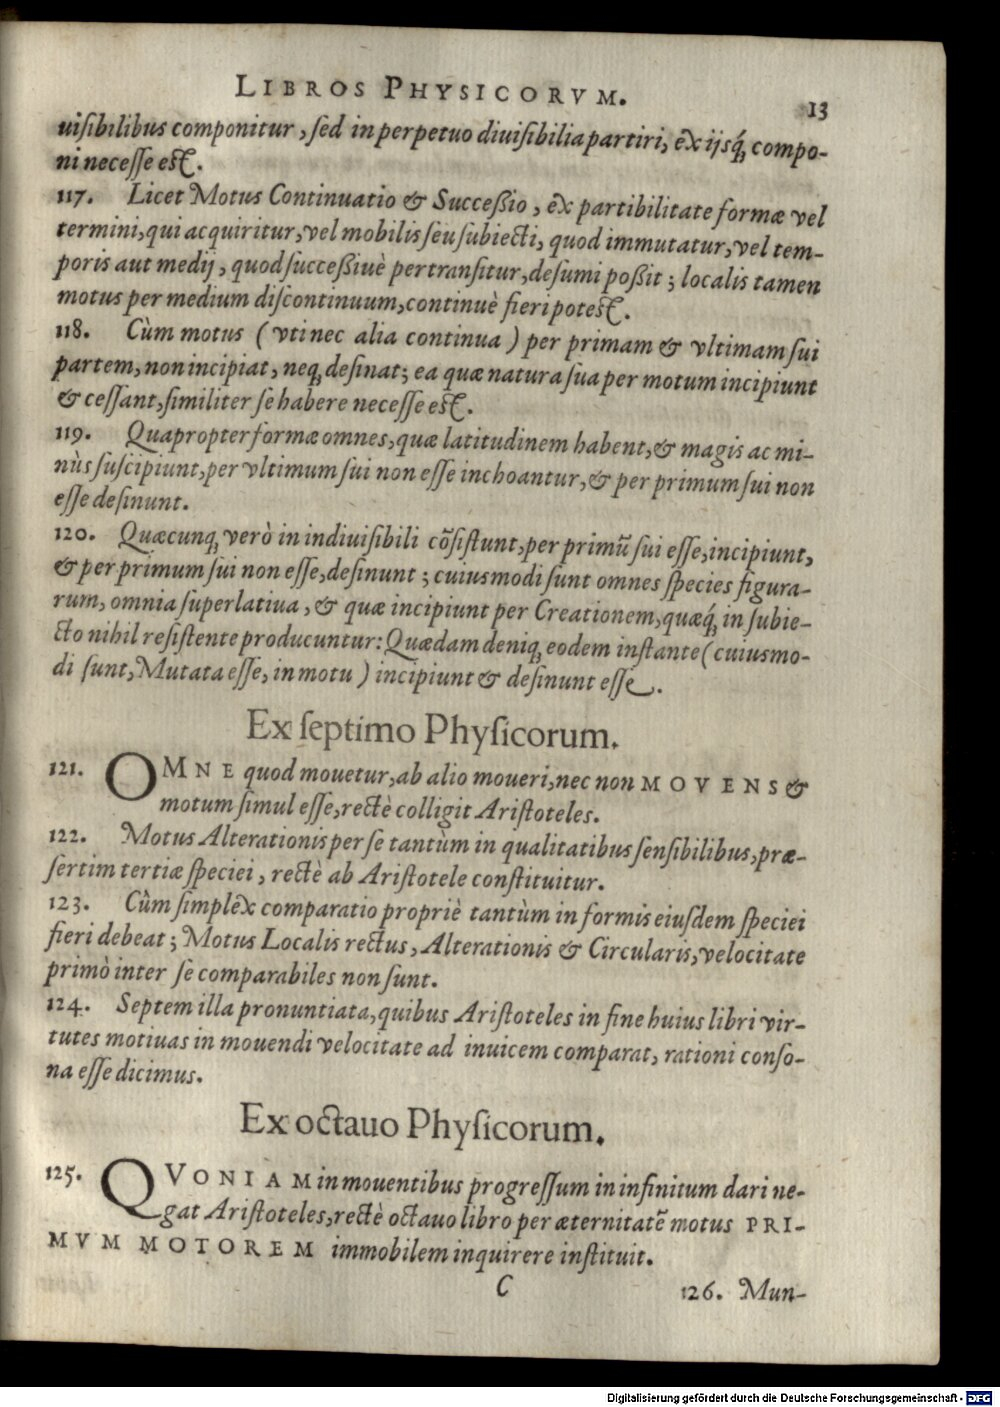 LIBROS PHYSICORVM.
13
uiſibilibus componitur, ſed in perpetuo diuiſibilia partiri, ex ijsq́; compo-
ni neceſſe eſt.
117. Licet Motus Continuatio & Succeßio, ex partibilitate formæ vel
termini, qui acquiritur, vel mobilis ſeu ſubiecti, quod immutatur, vel tem-
poris aut medij, quod ſucceßiuè pertranſitur, deſumi poßit; localis tamen
motus per medium diſcontinuum, continuè fieri poteſt.
118. Cùm motus (vti nec alia continua) per primam & vltimam ſui
partem, non incipiat, neq; deſinat; ea quæ natura ſua per motum incipiunt
& ceſſant, ſimiliter ſe habere neceſſe eſt.
119. Quapropter formæ omnes, quæ latitudinem habent, & magis ac mi-
nùs ſuſcipiunt, per vltimum ſui non eſſe inchoantur, & per primum ſui non
eſſe deſinunt.
120. Quæcunq; verò in indiuiſibili cõſiſtunt, per primũ ſui eſſe, incipiunt,
& per primum ſui non eſſe, deſinunt; cuiusmodi ſunt omnes ſpecies figura-
rum, omnia ſuperlatiua, & quæ incipiunt per Creationem, quæq́; in ſubie-
cto nihil reſiſtente producuntur: Quædam deniq; eodem inſtante (cuiusmo-
di ſunt, Mutata eſſe, in motu) incipiunt & deſinunt eſſe.
Ex ſeptimo Phyſicorum.
121. OMNE quod mouetur, ab alio moueri, nec non MOVENS &
motum ſimul eſſe, rectè colligit Ariſtoteles.
122. Motus Alterationis per ſe tantùm in qualitatibus ſenſibilibus, præ-
ſertim tertiæ ſpeciei, rectè ab Ariſtotele conſtituitur.
123. Cùm ſimplex comparatio propriè tantùm in formis eiuſdem ſpeciei
fieri debeat; Motus Localis rectus, Alterationis & Circularis, velocitate
primò inter ſe comparabiles non ſunt.
124. Septem illa pronuntiata, quibus Ariſtoteles in fine huius libri vir-
tutes motiuas in mouendi velocitate ad inuicem comparat, rationi conſo-
na eſſe dicimus.
Ex octauo Phyſicorum.
125. QVONIAM in mouentibus progreſſum in infinitum dari ne-
gat Ariſtoteles, rectè octauo libro per æternitatẽ motus PRI-
MVM MOTOREM immobilem inquirere inſtituit.
C
126. Mun-
Digitalisierung gefördert durch die Deutsche Forschungsgemeinschaft - DFG